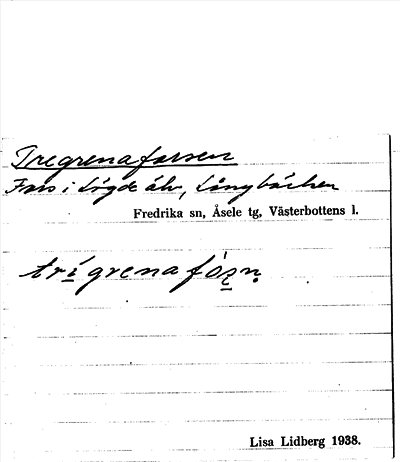 Tregrenaforsen
Fors i Lögde älv, Långbäcken
Fredrika sn, Åsele tg, Västerbottens l.
trígrenafórṣṇ
Lisa Lidberg 1938.